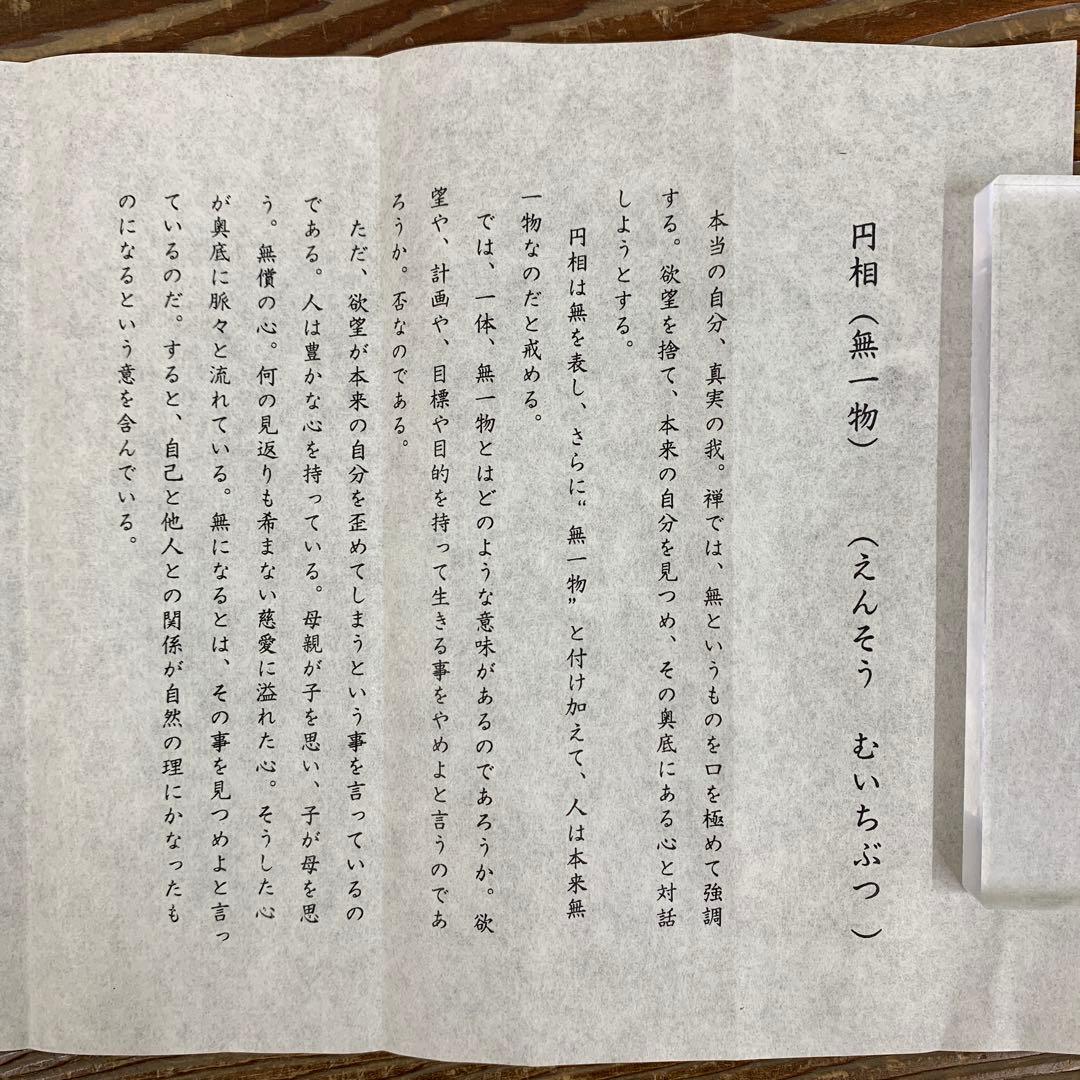 円相（無一物）　（えんそう　むいちぶつ）
本当の自分、真実の我。禅では、無というものを口を極めて強調
する。欲望を捨て、本来の自分を見つめ、その奥底にある心と対話
しようとする。
円相は無を表し、さらに〝無一物〟と付け加えて、人は本来無
一物なのだと戒める。
では、一体、無一物とはどのような意味があるのであろうか。欲
望や、計画や、目標や目的を持って生きる事をやめよと言うのであ
ろうか。否なのである。
ただ、欲望が本来の自分を歪めてしまうという事を言っているの
である。人は豊かな心を持っている。母親が子を思い、子が母を思
う。無償の心。何の見返りも希まない慈愛に溢れた心。そうした心
が奥底に脈々と流れている。無になるとは、その事を見つめよと言っ
ているのだ。すると、自己と他人との関係が自然の理にかなったも
のになるという意を含んでいる。